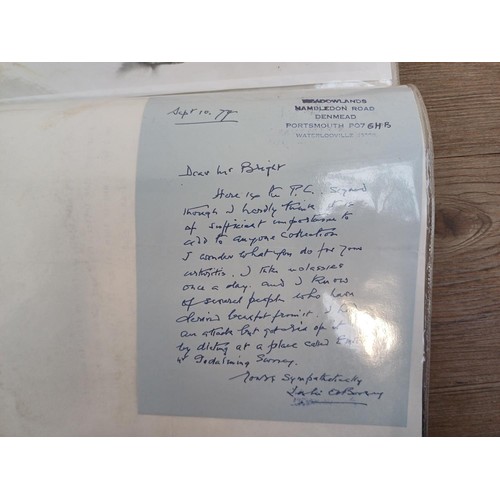 Sept 10. 77
MEADOWLANDS
HAMBLEDON ROAD
DENMEAD
PORTSMOUTH PO7 6HB
WATERLOOVILLE
Dear Mr Bright
Here is the P.C. signed
though I hardly think it is
of sufficient importance to
add to anyone collection
I wonder what you do for your
arthritis. I take molasses
once a day. and I know
of several people who have
derived benefit from it. I
an attack but get rid of it
by dieting at a place called
nr Godalming Surrey.
Yours Sympathetically